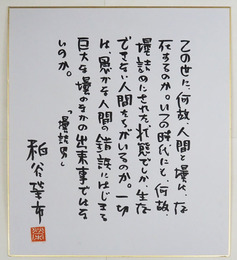 この世に、何故人間と壜は、存
在するのか。いつの時代にも、何故、
壜詰めにされた状態でしか、生存
できない人間たちがいるのか。一切
は、愚かな人間の錯誤にはじまる
巨大な壜のなかの出来事ではな
いのか。
「壜詰男」
粕谷栄市